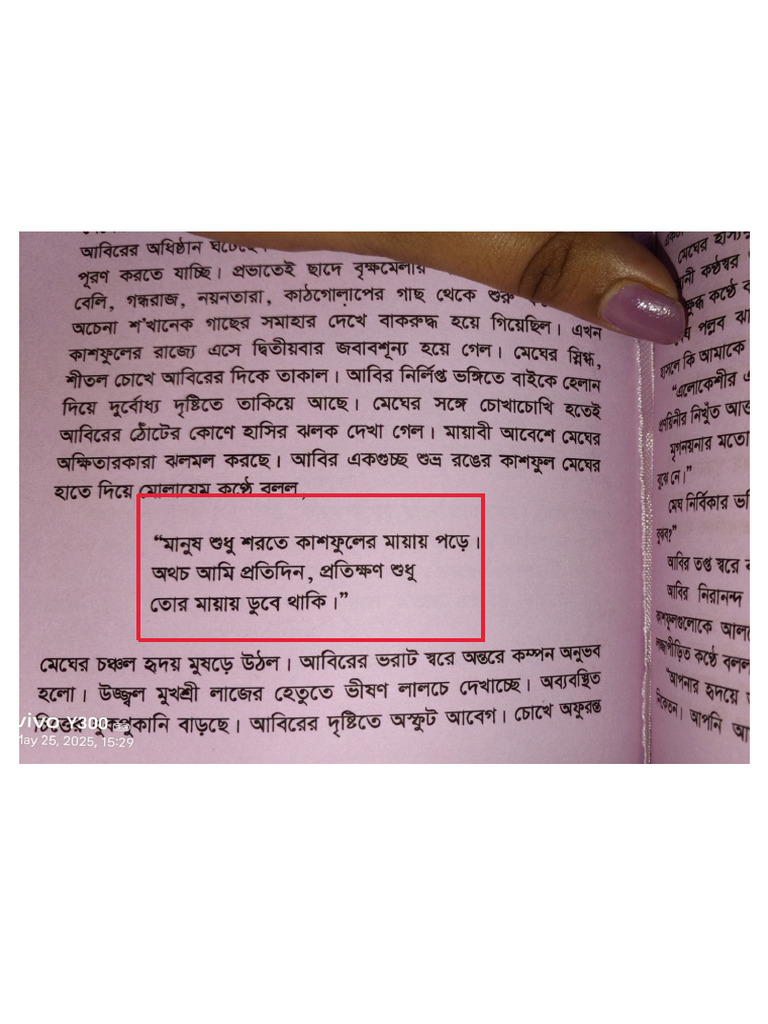 আবিরের অধিষ্ঠান ঘটেছে।
পূরণ করতে যাচ্ছি। প্রভাতেই ছাদে বৃক্ষমেলার
বেলি, গন্ধরাজ, নয়নতারা, কাঠগোলাপের গাছ থেকে শুরু
অচেনা শ'খানেক গাছের সমাহার দেখে বাকরুদ্ধ হয়ে গিয়েছিল। এখন
কাশফুলের রাজ্যে এসে দ্বিতীয়বার জবাবশূন্য হয়ে গেল। মেঘের স্নিগ্ধ,
শীতল চোখে আবিরের দিকে তাকাল। আবির নির্লিপ্ত ভঙ্গিতে বাইকে হেলান
দিয়ে দুর্বোধ্য দৃষ্টিতে তাকিয়ে আছে। মেঘের সঙ্গে চোখাচোখি হতেই
আবিরের ঠোঁটের কোণে হাসির ঝলক দেখা গেল। মায়াবী আবেশে মেঘের
অক্ষিতারকারা ঝলমল করছে। আবির একগুচ্ছ শুভ্র রঙের কাশফুল মেঘের
হাতে দিয়ে মোলায়েম কণ্ঠে বলল,
“মানুষ শুধু শরতে কাশফুলের মায়ায় পড়ে।
অথচ আমি প্রতিদিন, প্রতিক্ষণ শুধু
তোর মায়ায় ডুবে থাকি।”
মেঘের চঞ্চল হৃদয় মুষড়ে উঠল। আবিরের ভরাট স্বরে অন্তরে কম্পন অনুভব
হলো। উজ্জ্বল মুখশ্রী লাজের হেতুতে ভীষণ লালচে দেখাচ্ছে। অব্যবস্থিত
চিত্তের বাড়ছে। আবিরের দৃষ্টিতে অস্ফুট আবেগ। চোখে অফুরন্ত
vivo Y300
May 25, 2025, 15:29
মেঘের হাস্য
কণ্ঠস্বর
কণ্ঠে
পল্লব
হাসলে কি আমাকে
“এলোকেশীর
প্রণয়িনীর নিখুঁত
মৃগনয়নার মতো
বুঝে নে।”
মেঘ নির্বিকার
বুঝব?”
আবির তপ্ত স্বরে
আবির নিরানন্দ
কাশফুলগুলোকে
লজ্জাপীড়িত কণ্ঠে বলল
“আপনার হৃদয়ে
নিকেতন। আপনি